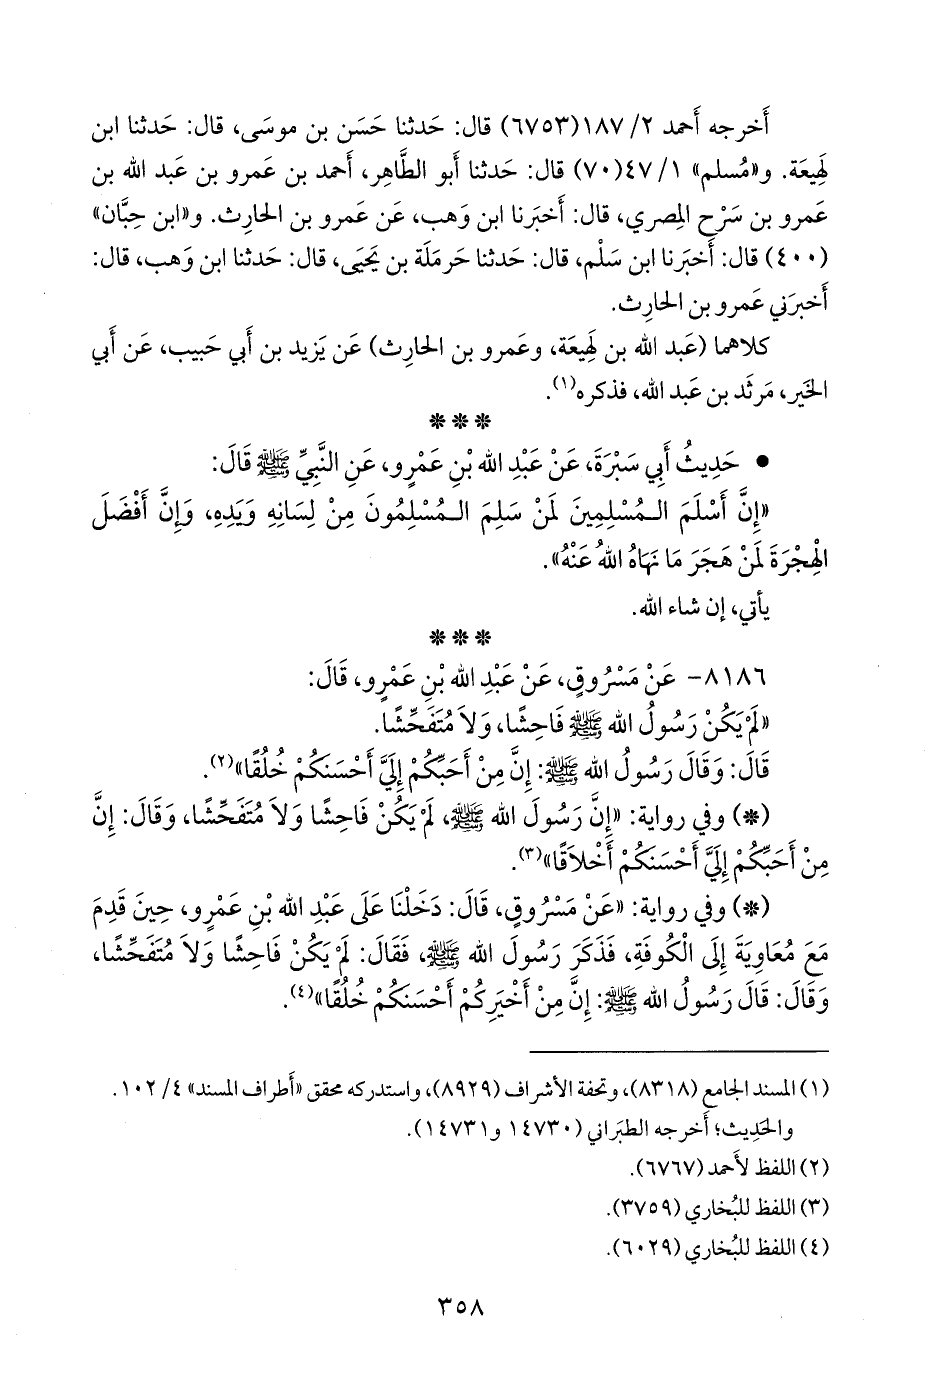 أَخرجه أَحمد ٢/ ١٨٧(٦٧٥٣) قال: حَدثنا حَسَن بن موسَى، قال: حَدثنا ابن
لَهِيعَة. و«مُسلم» ١/ ٤٧(٧٠) قال: حَدثنا أَبو الطَّاهِر، أَحمد بن عَمرو بن عَبد الله بن
عَمرو بن سَرْح المِصري، قال: أَخبَرنا ابن وَهب، عَن عَمرو بن الحارِث. و«ابن حِبَّان»
(٤٠٠) قال: أَخبَرنا ابن سَلْم، قال: حَدثنا حَرمَلَة بن يَحيَى، قال: حَدثنا ابن وَهب، قال:
أَخبرَني عَمرو بن الحارِث.
كلاهما (عَبد الله بن لَهِيعَة، وعَمرو بن الحارِث) عَن يَزيد بن أَبي حَبيب، عَن أَبي
الخَير، مَرثَد بن عَبد الله، فذكره(١).
* * *
• حَدِيثُ أَبِي سَبْرَةَ، عَنْ عَبْدِ الله بْنِ عَمْرٍو، عَنِ النَّبِيِّ ﷺ قَالَ:
«إِنَّ أَسْلَمَ الـمُسْلِمِينَ لَمَنْ سَلِمَ الـمُسْلِمُونَ مِنْ لِسَانِهِ وَيَدِهِ، وَإِنَّ أَفْضَلَ
الْهِجْرَةَ لَمَنْ هَجَرَ مَا نَهَاهُ اللهُ عَنْهُ».
يأتي، إن شاء الله.
* * *
٨١٨٦- عَنْ مَسْرُوقٍ، عَنْ عَبْدِ الله بْنِ عَمْرٍو، قَالَ:
«لَمْ يَكُنْ رَسُولُ الله ﷺ فَاحِشًا، وَلاَ مُتَفَحِّشًا.
قَالَ: وَقَالَ رَسُولُ الله ﷺ: إِنَّ مِنْ أَحَبِّكُمْ إِلَيَّ أَحْسَنَكُمْ خُلُقًا»(٢).
(*) وفي رواية: «إِنَّ رَسُولَ الله ﷺ، لَمْ يَكُنْ فَاحِشًا وَلاَ مُتَفَحِّشًا، وَقَالَ: إِنَّ
مِنْ أَحَبِّكُمْ إِلَيَّ أَحْسَنَكُمْ أَخْلاَقًا»(٣).
(*) وفي رواية: «عَنْ مَسْرُوقٍ، قَالَ: دَخَلْنَا عَلَى عَبْدِ الله بْنِ عَمْرٍو، حِينَ قَدِمَ
مَعَ مُعَاوِيَةَ إِلَى الْكُوفَةِ، فَذَكَرَ رَسُولَ الله ﷺ، فَقَالَ: لَمْ يَكُنْ فَاحِشًا وَلاَ مُتَفَحِّشًا،
وَقَالَ: قَالَ رَسُولُ الله ﷺ: إِنَّ مِنْ أَخْيَرِكُمْ أَحْسَنَكُمْ خُلُقًا»(٤).
(١) المسند الجامع (٨٣١٨)، وتحفة الأشراف (٨٩٢٩)، واستدركه محقق «أَطراف المسند» ٤/ ١٠٢.
والحَدِيث؛ أَخرجه الطبَراني (١٤٧٣٠ و١٤٧٣١).
(٢) اللفظ لأَحمد (٦٧٦٧).
(٣) اللفظ للبُخاري (٣٧٥٩).
(٤) اللفظ للبُخاري (٦٠٢٩).
٣٥٨